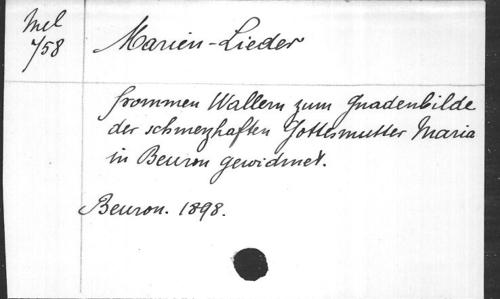 Mel
758
Marien-Lieder
frommen Wallern zum Gnadenbilde
der schmerzhaften Gottesmutter Maria
in Beuron gewidmet.
Beuron. 1898.